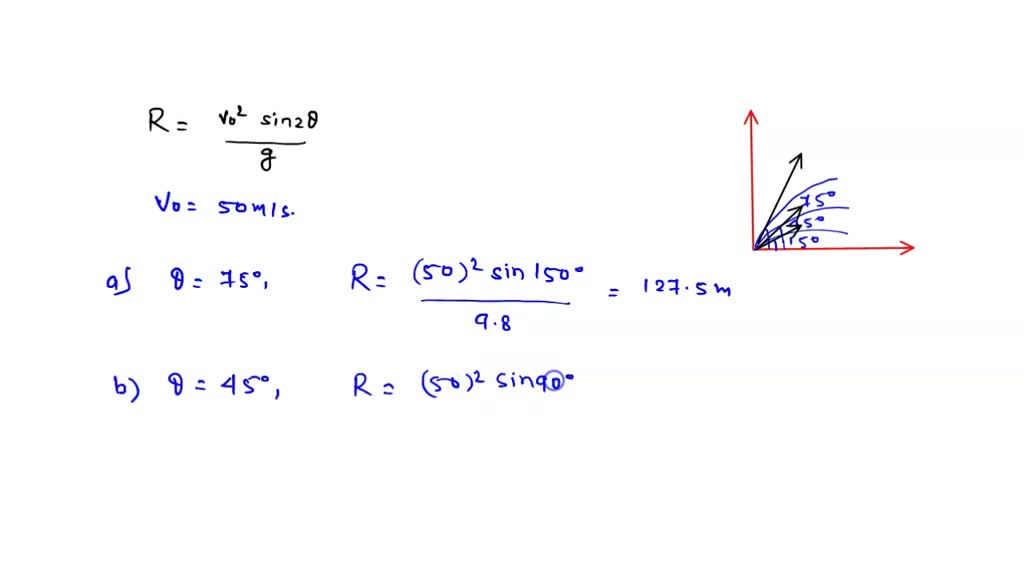 R = v₀² sin2θ / g
V₀ = 50m/s.
a) θ = 75°, R = (50)² sin 150° / 9.8 = 127.5 m
b) θ = 45°, R = (50)² sin90°
75°
45°
15°